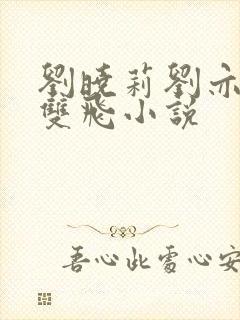 劉曉莉劉亦
雙飛小說
吾心此處心安